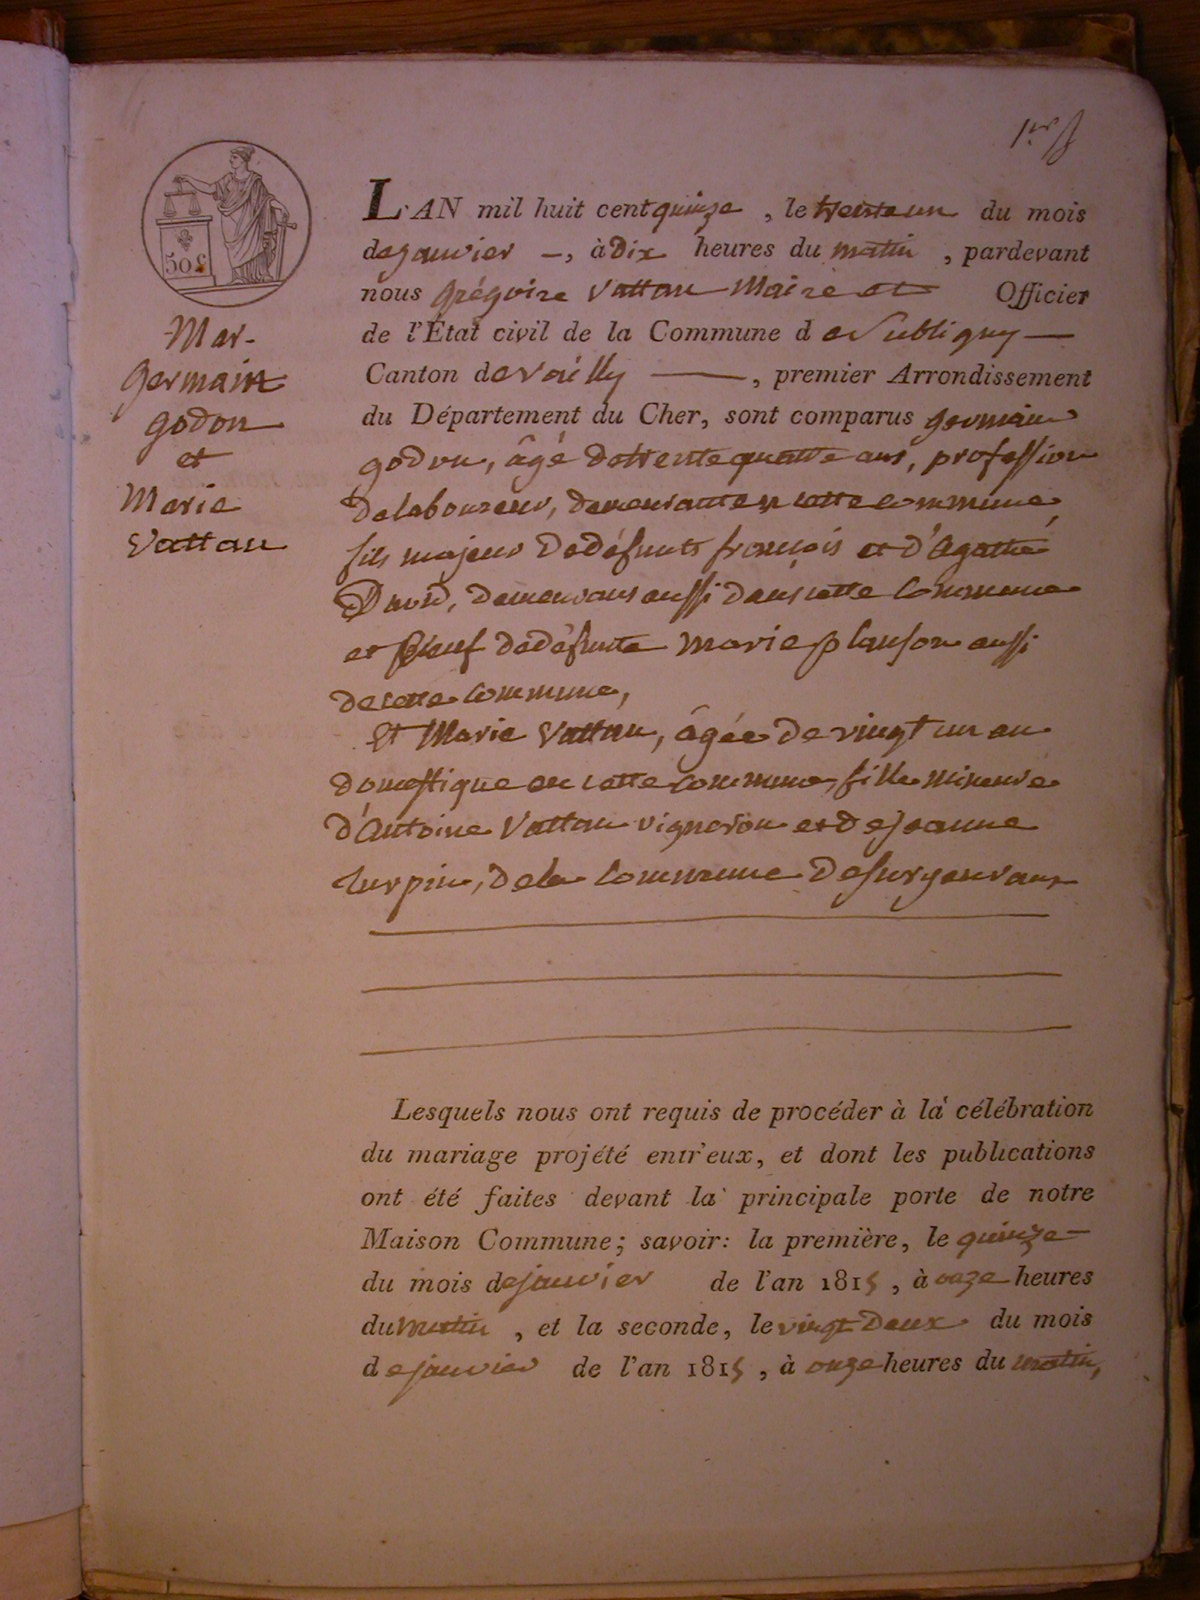 1er
50 c
Mar.
germain
godon
et
Marie
Vattan
L'AN mil huit cent quinze, le trente un du mois
de janvier —, à dix heures du matin, pardevant
nous grégoire Vattan Maire et Officier
de l'État civil de la Commune de Subligny —
Canton de vailly —, premier Arrondissement
du Département du Cher, sont comparus germain
godon, âgé de trente quatre ans, profession
de laboureur, demeurant en cette commune,
fils majeur de défunts françois et d'Agathe
David, demeurans aussi dans cette Commune
et veuf de défunte Marie planson aussi
de cette commune,
Et Marie Vattan, âgée de vingt un an
domestique en cette commune, fille mineure
d'Antoine Vattan vigneron et de jeanne
turpin, de la Commune de
Lesquels nous ont requis de procéder à la célébration
du mariage projété entr'eux, et dont les publications
ont été faites devant la principale porte de notre
Maison Commune; savoir: la première, le quinze —
du mois de janvier de l'an 1815, à onze heures
du matin, et la seconde, le vingt deux du mois
de janvier de l'an 1815, à onze heures du matin,